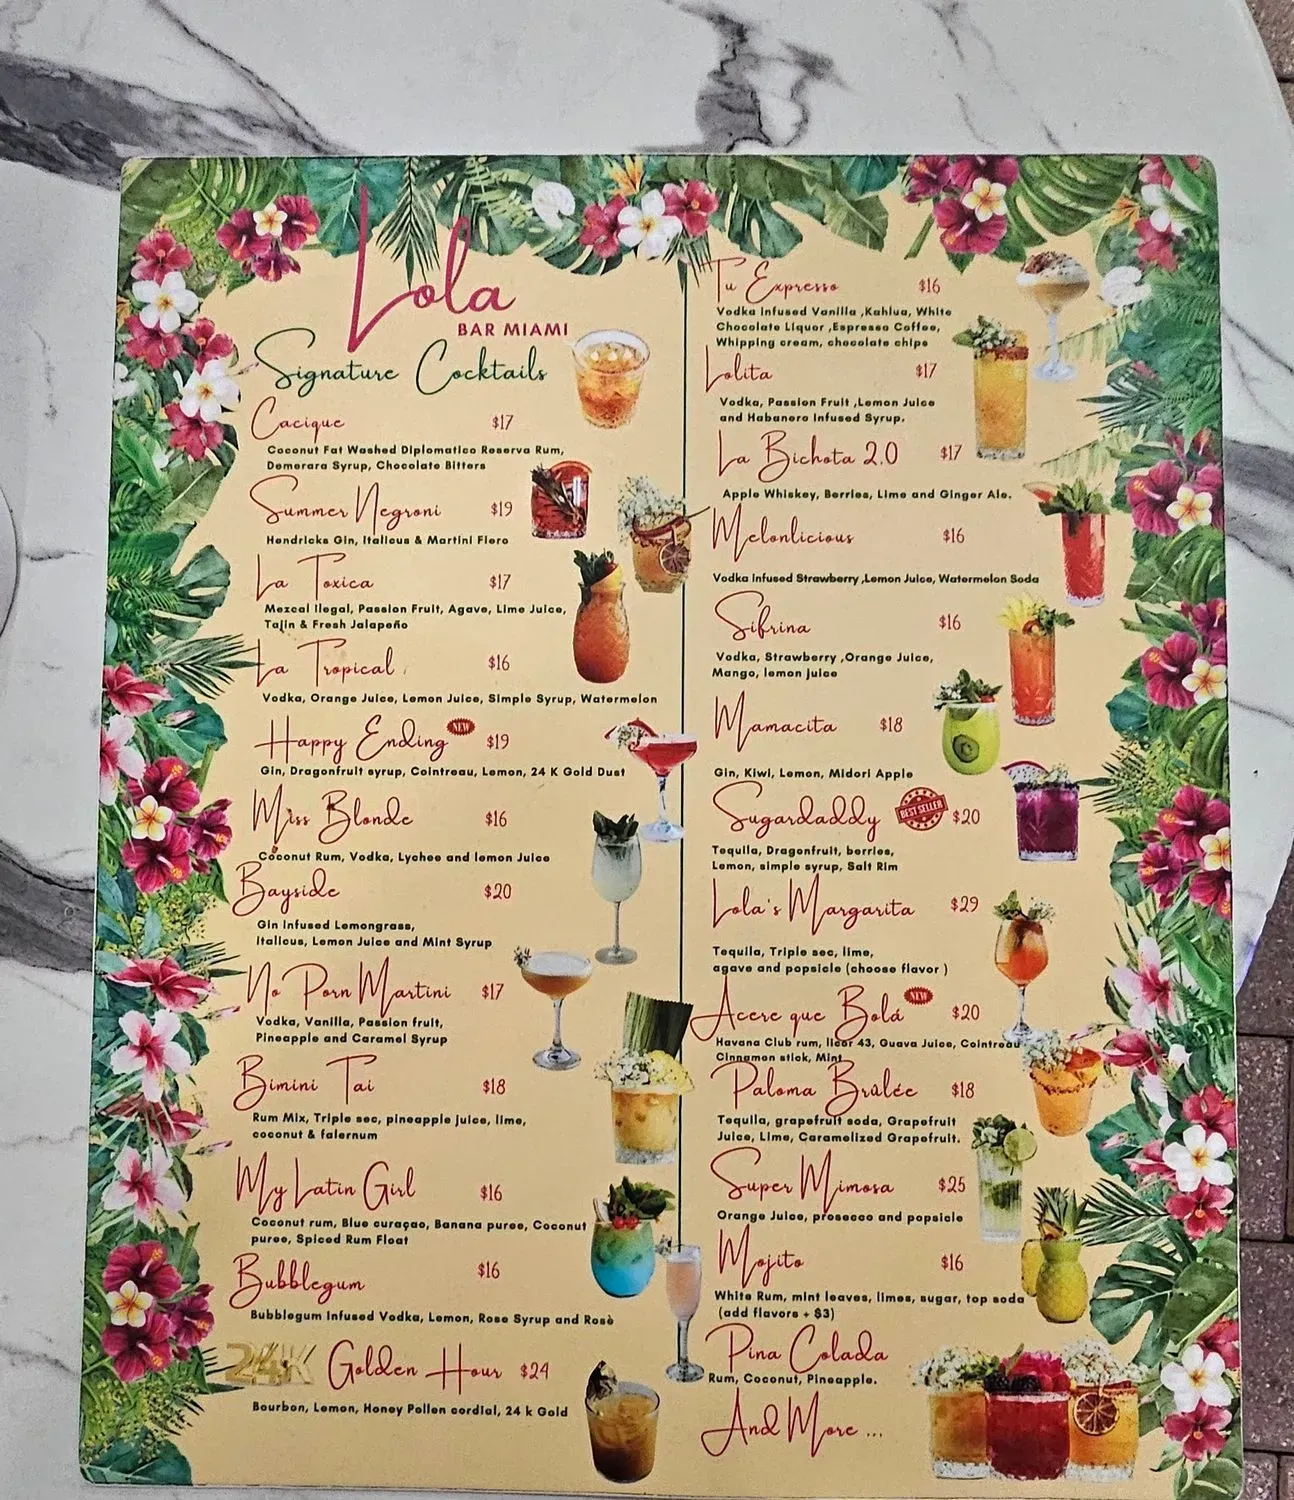 Lola
BAR MIAMI
Signature Cocktails
Cacique $17
Coconut Fat Washed Diplomatico Reserva Rum,
Demerara Syrup, Chocolate Bitters
Summer Negroni $19
Hendricks Gin, Italicus & Martini Fiero
La Toxica $17
Mezcal Ilegal, Passion Fruit, Agave, Lime Juice,
Tajin & Fresh Jalapeño
La Tropical $16
Vodka, Orange Juice, Lemon Juice, Simple Syrup, Watermelon
Happy Ending NEW $19
Gin, Dragonfruit syrup, Cointreau, Lemon, 24 K Gold Dust
Miss Blonde $16
Coconut Rum, Vodka, Lychee and lemon Juice
Bayside $20
Gin Infused Lemongrass,
Italicus, Lemon Juice and Mint Syrup
No Porn Martini $17
Vodka, Vanilla, Passion fruit,
Pineapple and Caramel Syrup
Bimini Tai $18
Rum Mix, Triple sec, pineapple juice, lime,
coconut & falernum
My Latin Girl $16
Coconut rum, Blue curaçao, Banana puree, Coconut
puree, Spiced Rum Float
Bubblegum $16
Bubblegum Infused Vodka, Lemon, Rose Syrup and Rosè
24K Golden Hour $24
Bourbon, Lemon, Honey Pollen cordial, 24 k Gold
Tu Expresso $16
Vodka Infused Vanilla ,Kahlua, White
Chocolate Liquor ,Espresso Coffee,
Whipping cream, chocolate chips
Lolita $17
Vodka, Passion Fruit ,Lemon Juice
and Habanero Infused Syrup.
La Bichota 2.0 $17
Apple Whiskey, Berries, Lime and Ginger Ale.
Melonlicious $16
Vodka Infused Strawberry ,Lemon Juice, Watermelon Soda
Sifrina $16
Vodka, Strawberry ,Orange Juice,
Mango, lemon juice
Mamacita $18
Gin, Kiwi, Lemon, Midori Apple
Sugardaddy BEST SELLER $20
Tequila, Dragonfruit, berries,
Lemon, simple syrup, Salt Rim
Lola's Margarita $29
Tequila, Triple sec, lime,
agave and popsicle (choose flavor )
Acere que Bolá NEW $20
Havana Club rum, licor 43, Guava Juice, Cointreau
Cinnamon stick, Mint
Paloma Brûlée $18
Tequila, grapefruit soda, Grapefruit
Juice, Lime, Caramelized Grapefruit.
Super Mimosa $25
Orange Juice, prosecco and popsicle
Mojito $16
White Rum, mint leaves, limes, sugar, top soda
(add flavors + $3)
Pina Colada
Rum, Coconut, Pineapple.
And More ...